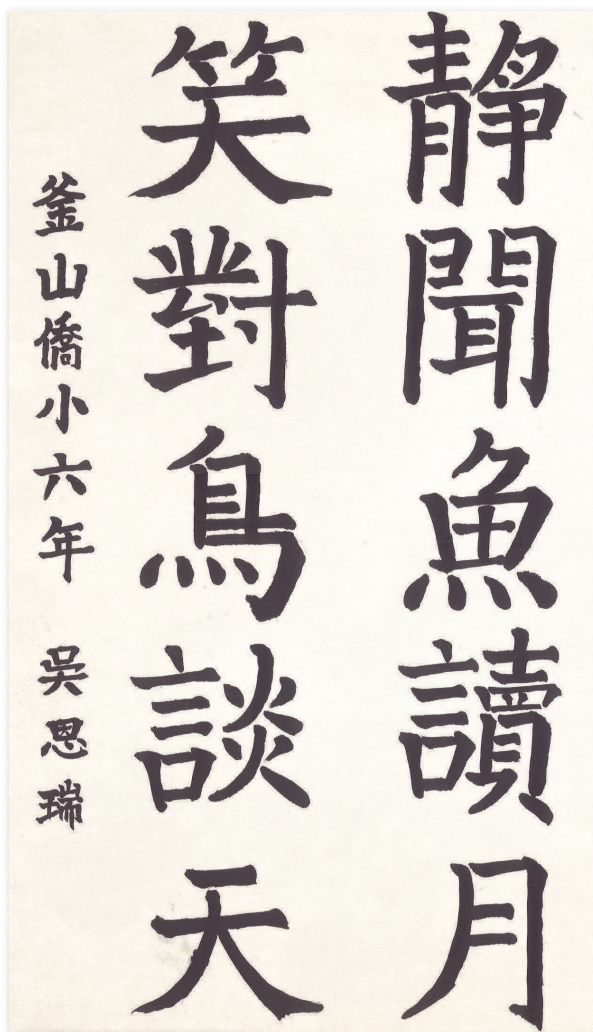 靜聞魚讀月
笑對鳥談天
釜山僑小六年 吳恩瑞